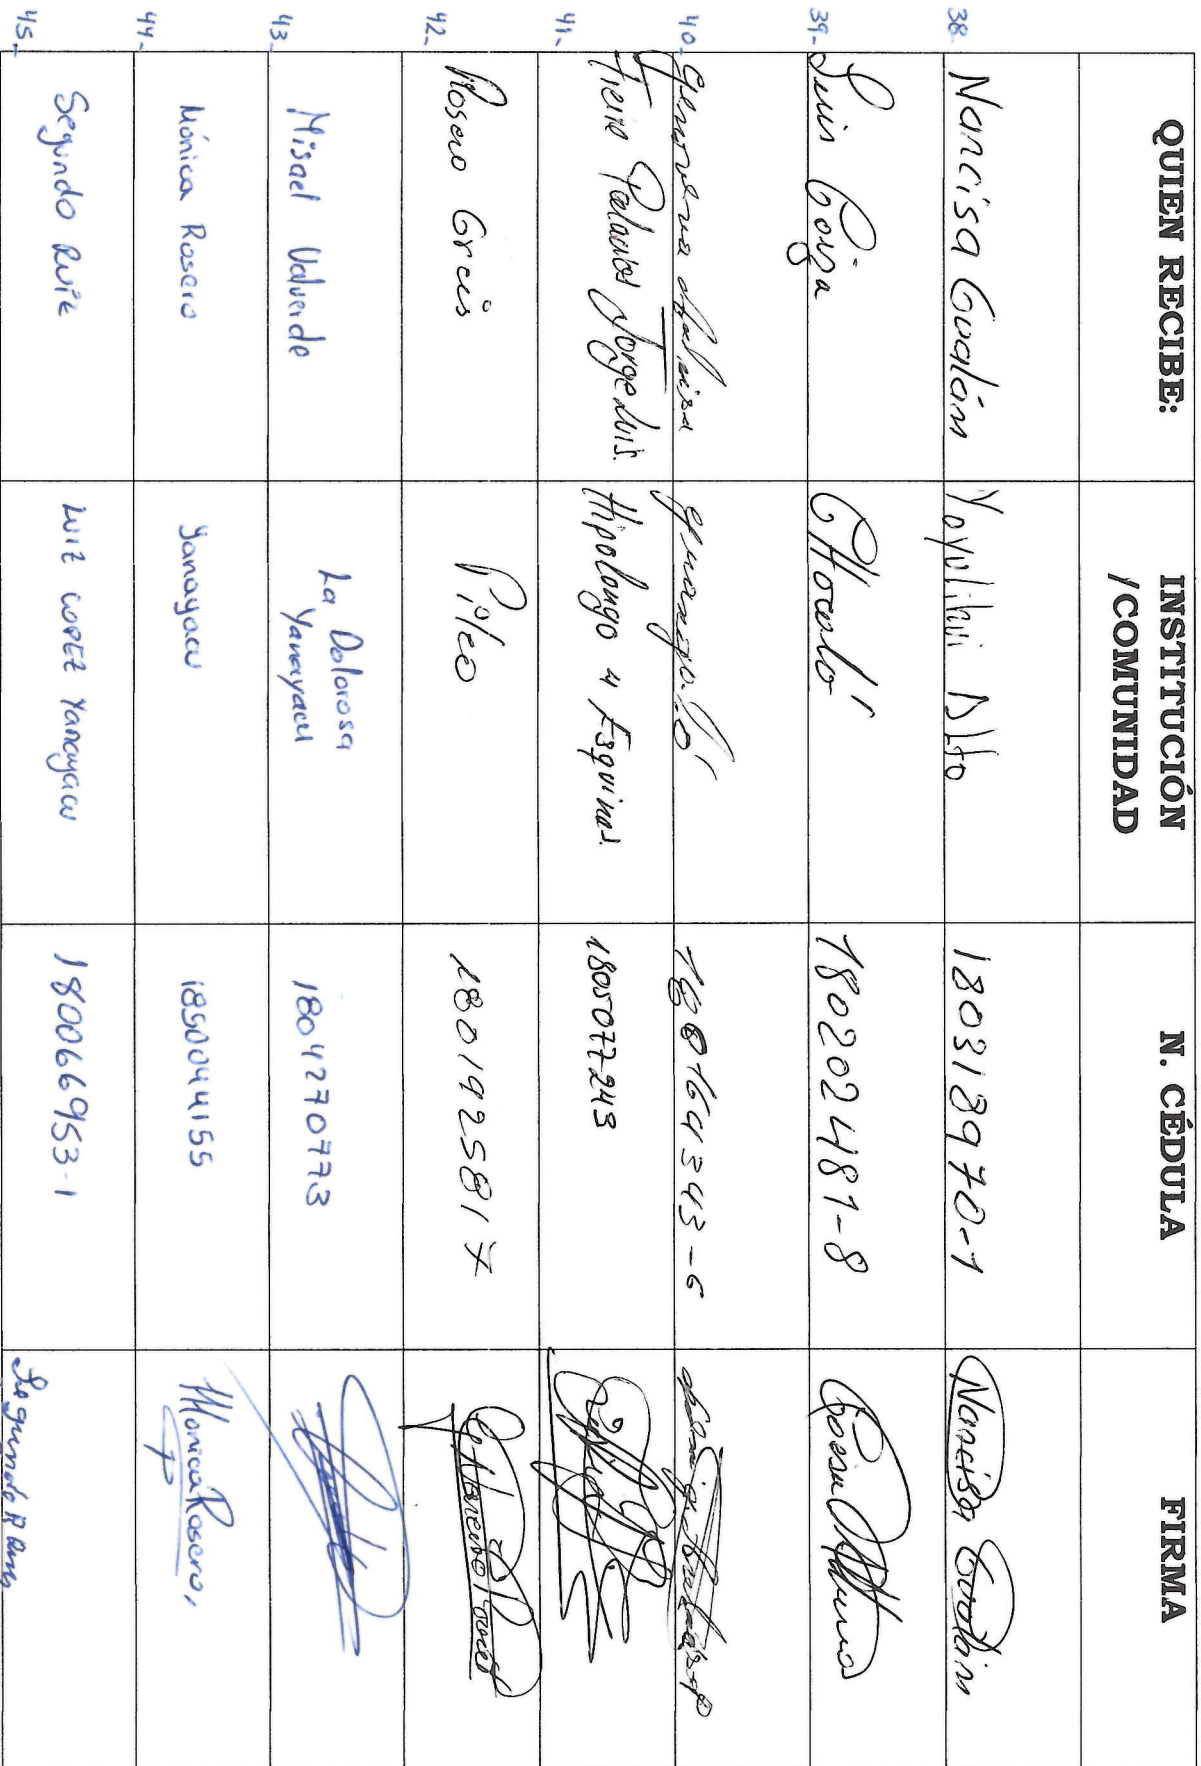 QUIEN RECIBE: INSTITUCIÓN /COMUNIDAD N. CÉDULA FIRMA
38- Narcisa Gualán Yayulihui Alto 180318970-1 Narcisa Gualán
39- Luis Coiza CHocaló 180202481-8
40- Genoveva 180164343-6
41- Fierro Palacios Jorge Luis. Hipolongo 4 Esquinas. 1805077243
42- Rosero Grecis Pilco 1801925817
43- Misael Valverde La Dolorosa Yanayacu 1804270773
44- Mónica Rosero Yanayacu 1850044155 Monica Rosero,
45- Segundo Ruiz LUIZ LOPEZ Yanayacu 180066953-1 Segundo R